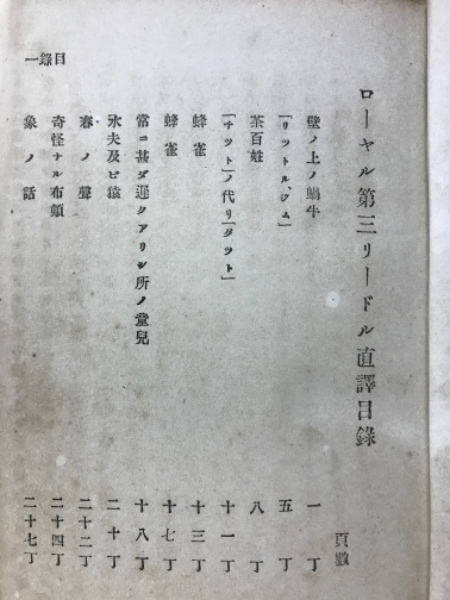 ローヤル第三リードル直譯目錄
頁數
壁ノ上ノ蝸牛 一丁
「リツトル、ジム」 五丁
茶百姓 八丁
「ナツト」ノ代リ「ダツト」 十一丁
蜂雀 十三丁
蜂雀 十七丁
常ニ甚ダ遲クアリル所ノ童兒 十八丁
水夫及ビ猿 二十丁
春ノ聲 二十二丁
奇怪ナル布顛 二十四丁
象ノ話 二十七丁
目錄一